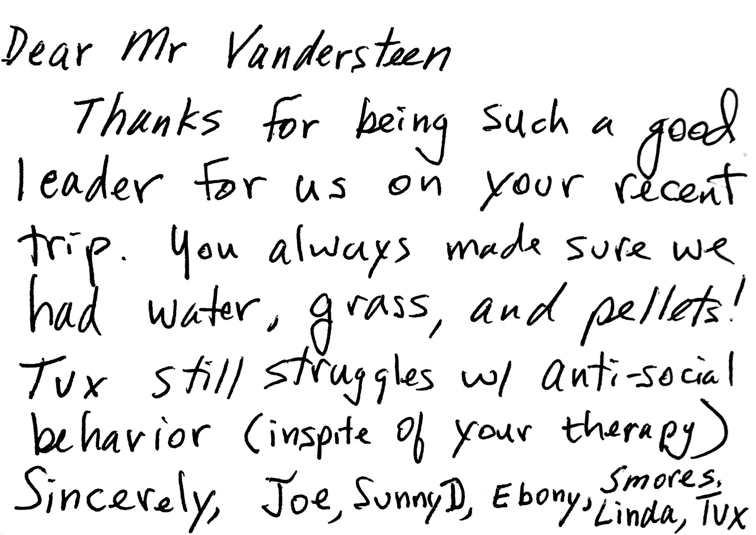 Dear Mr Vandersteen
Thanks for being such a good
leader for us on your recent
trip. You always made sure we
had water, grass, and pellets!
Tux still struggles w/ anti-social
behavior (inspite of your therapy)
Sincerely, Joe, SunnyD, Ebony, Smores,
Linda, Tux